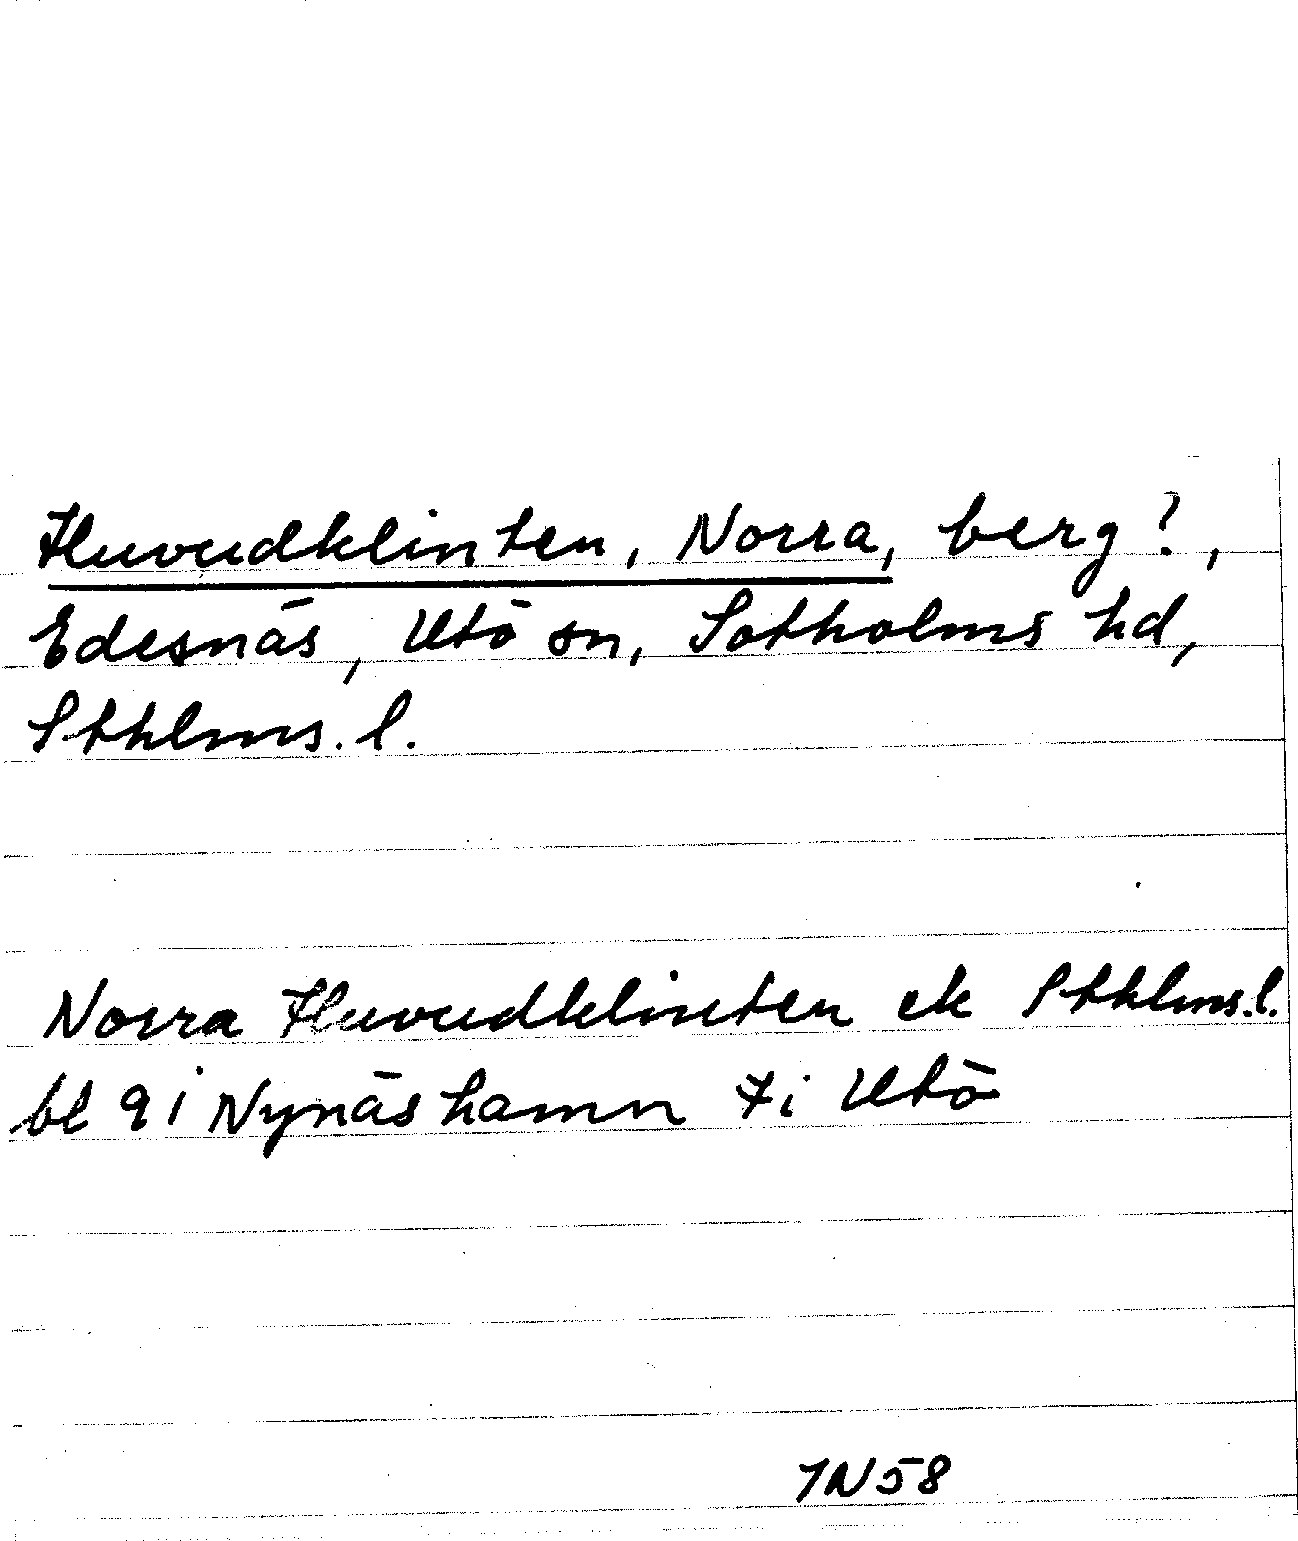 Huvudklinten, Norra, berg?,
Edesnäs, Utö sn, Sotholms hd,
Sthlms. l.
Norra Huvudklinten ek Sthlms.l.
bl 91 Nynäshamn 7i Utö
7N58